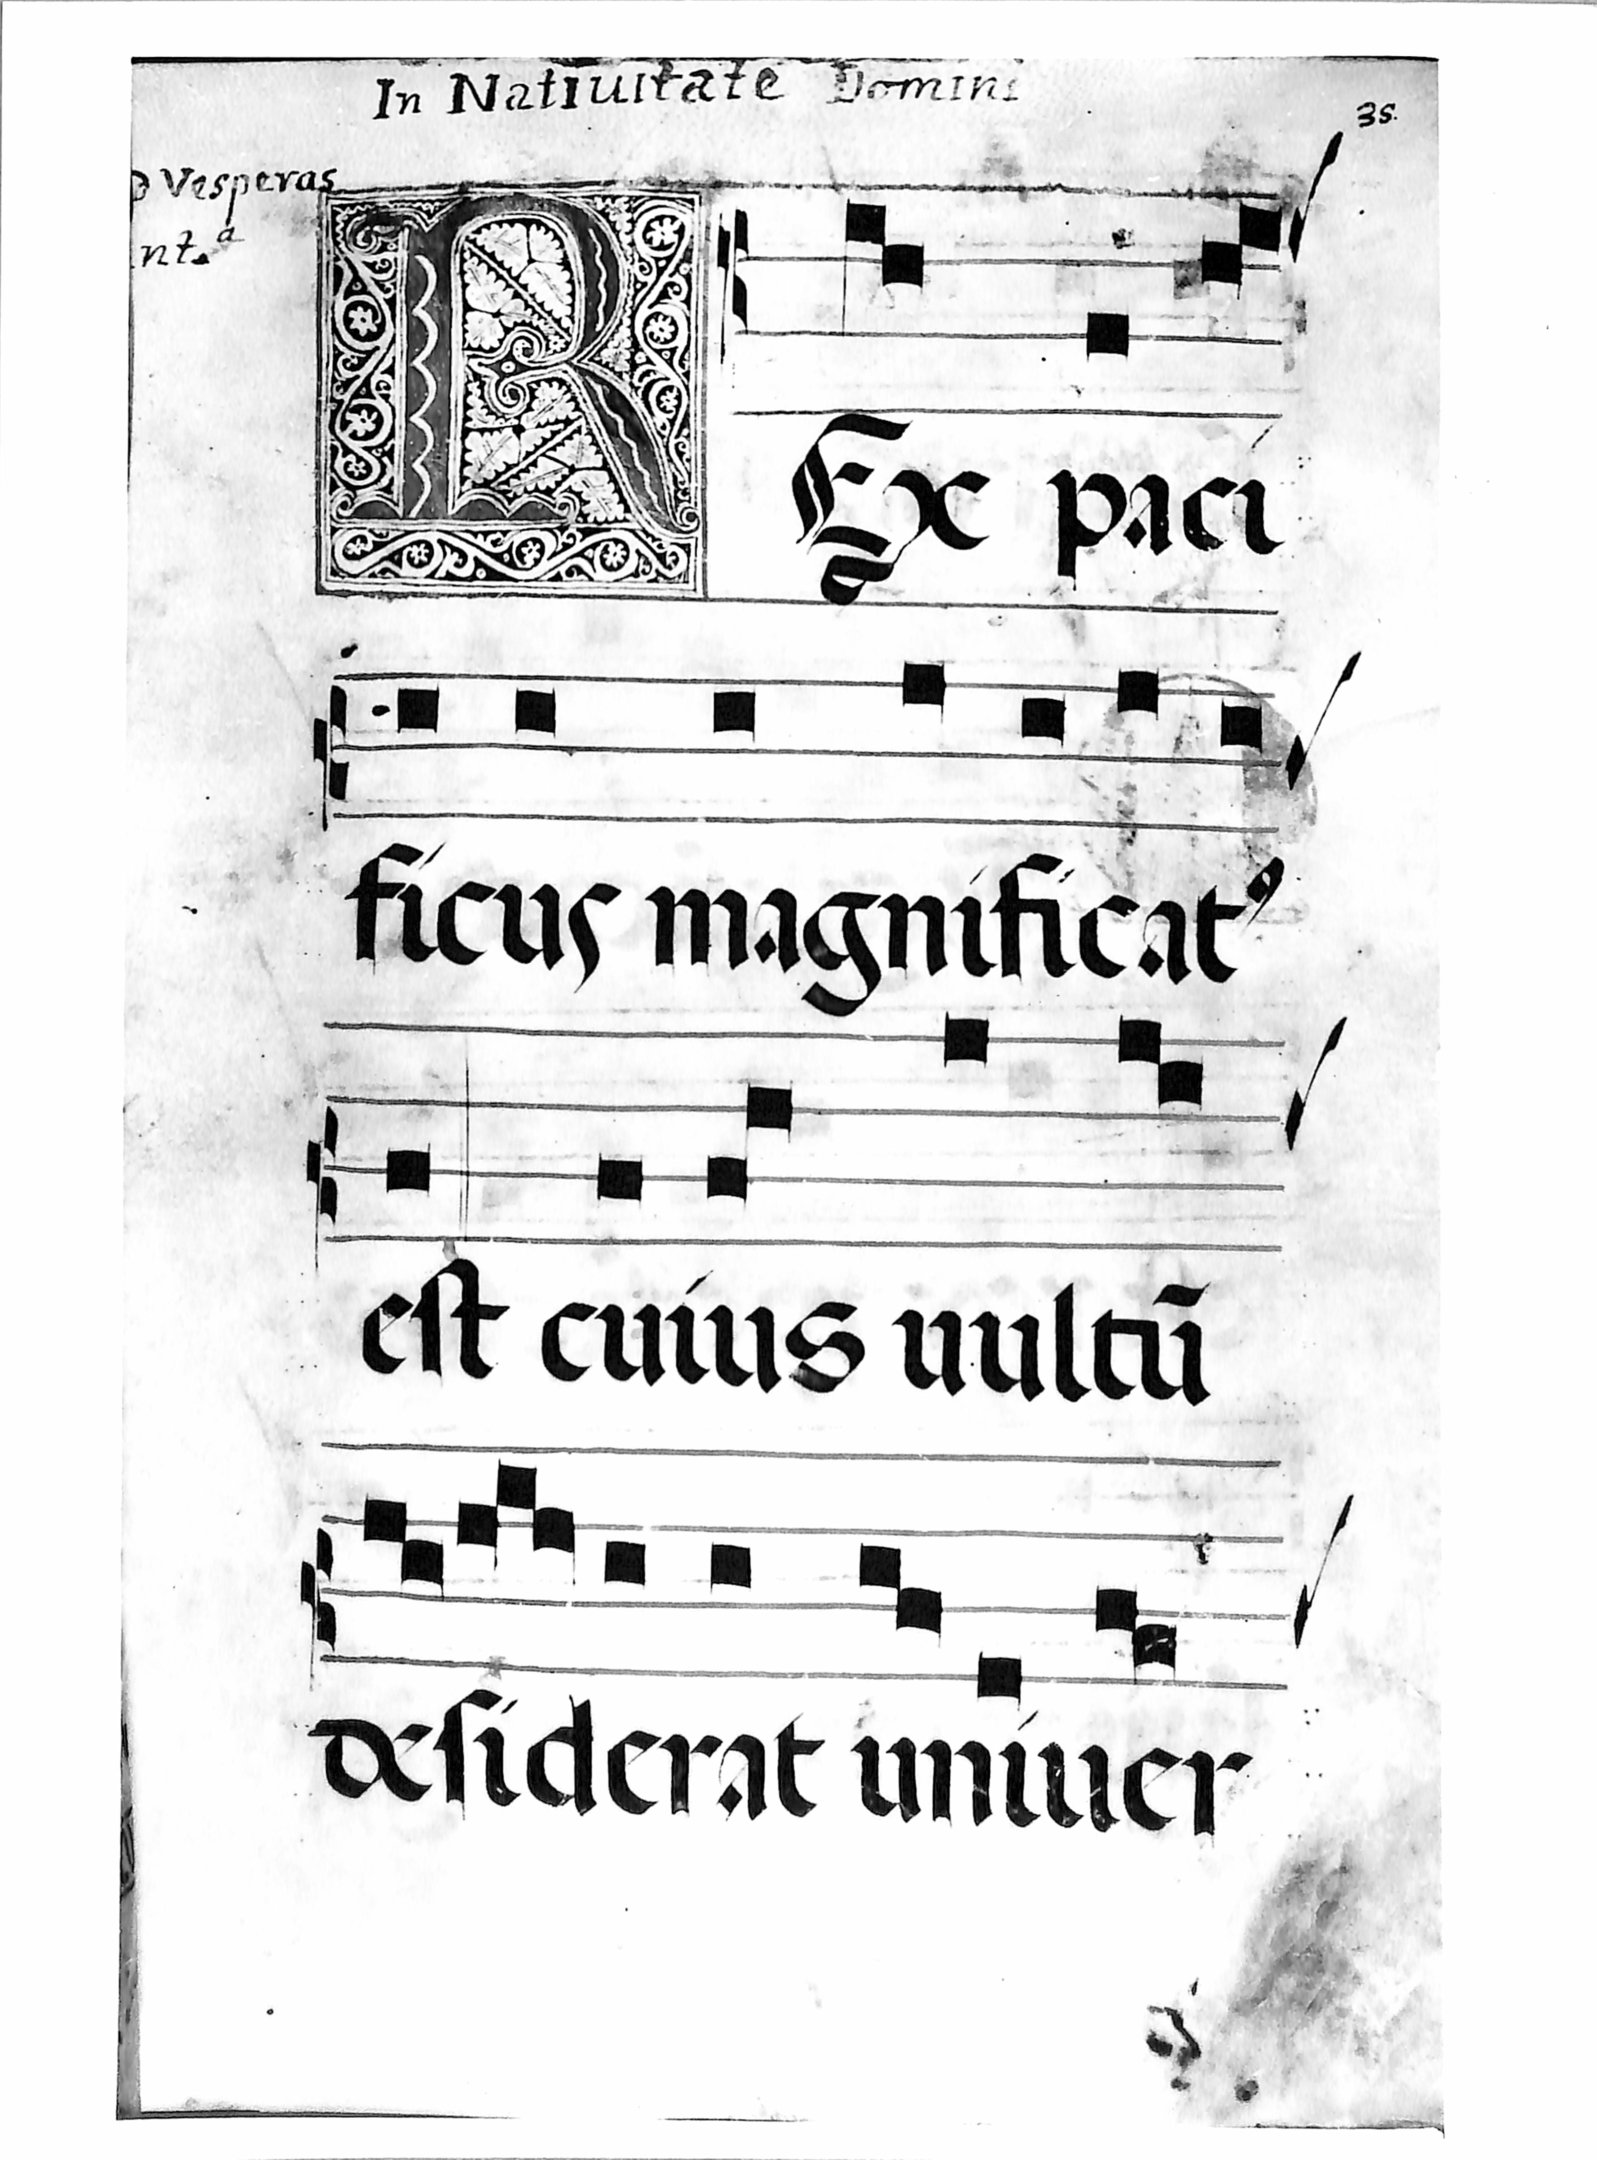 In Natiuitate Domini
35.
D Vesperas
nt.a
REx paci
ficus magnificatꝰ
est cuius uultū
desiderat uniuer